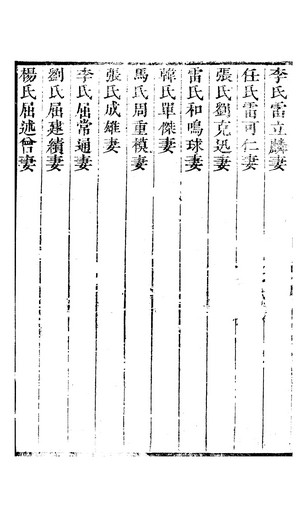 李氏雷立麟妻
任氏雷可仁妻
張氏劉克迅妻
雷氏和鳴球妻
韓氏單傑妻
馬氏周重模妻
張氏成雄妻
李氏屈常通妻
劉氏屈建績妻
楊氏屈述曾妻